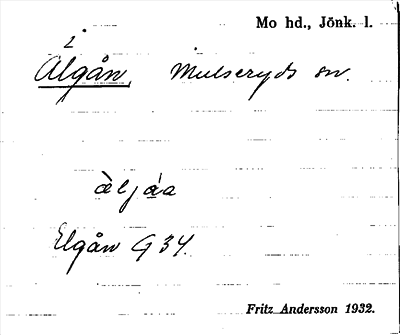 Mo hd., Jönk. l.
i
Älgån, Mulseryds sn.
äljåa
Elgån G 34.
Fritz Andersson 1932.